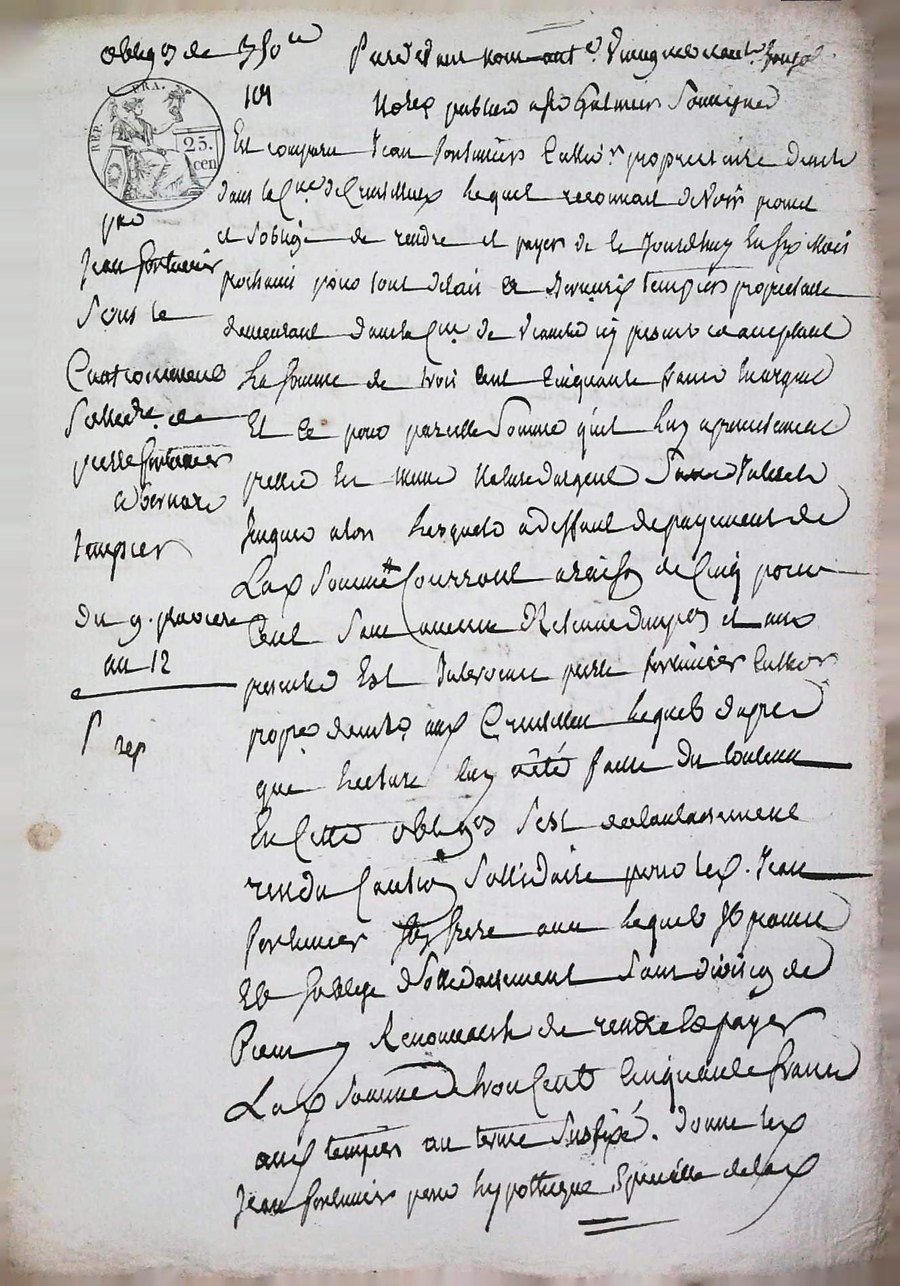 oblig^on de 350^tt
Pardevant nous
101
Nores publics a St Galmier Soussignés
REP. FRA.
25.
cen
Est comparu Jean fortunier Cultiv^r propriétaire demt
dans la C^ne de Cuzillieux lequel reconnait devoir promet
et s'oblige de rendre et payer de ce Jourdhuy en six Mois
prochain pour tout delait a Bernard tempier proprietaire
demeurant dans la C^ne de ici present et acceptant
La somme de trois Cent Cinquante francs
Et Ce pour pareille Somme qu'il luy a presentement
prettée En Nature d'argent Sans
Jusques alors lesquels a deffaut de payement de
Lad Somme Courront a raison de Cinq pour
Cent Sans aucune Retenue et aux
presentes Est Intervenu pierre fortunier Cultivr
propre demt aud Cuzillieu lequel d'apres
que lecture luy a été faitte du Contenu
En Cette oblig^on s'est volontairement
rendu Caution Sollidaire pour led. Jean
fortunier son frere avec lequel Il promet
Et s'oblige Sollidairement Sans division de
y Renoncant de rendre et payer
Lad Somme de trois Cent Cinquante francs
aud tempier au terme Susfixé. Donne led
Jean fortunier pour hypotheque Speciale de lad
pro
Jean fortunier
Sous le
Cautionnement
Sollidre de
pierre fortunier
a Bernard
tempier
Du 9. pluviose
an 12
rep